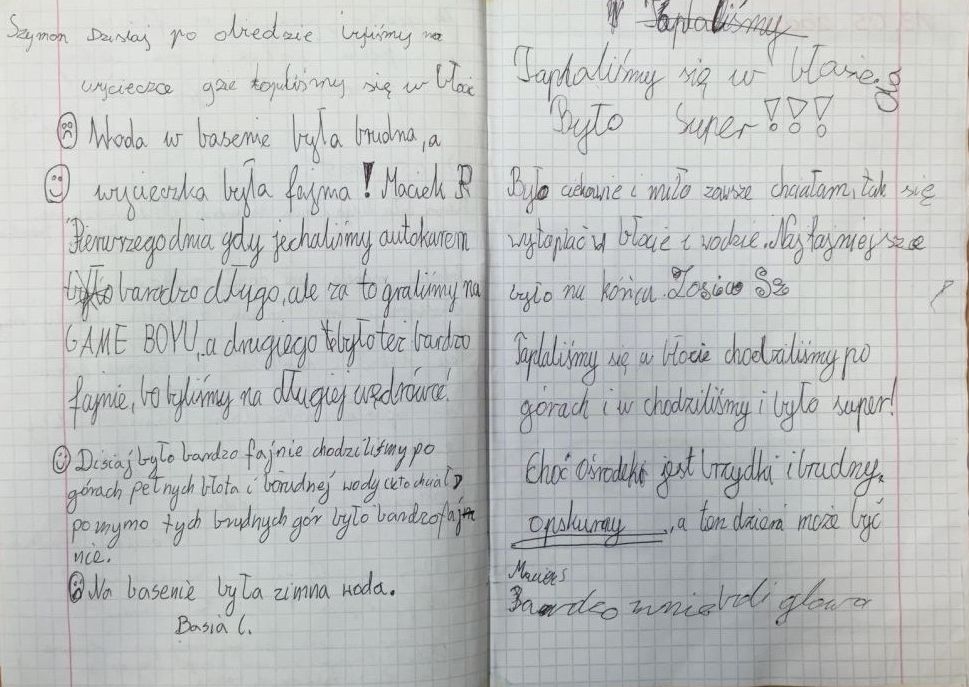 Szymon Dzisiaj po obiedzie byliśmy na
wycieczce gze topiliśmy się w błocie
Woda w basenie była brudna, a
wycieczka była fajna! Maciek R
Pierwrzego dnia gdy jechaliśmy autokarem
było barodzo długo, ale za to graliśmy na
GAME BOYU, a drugiego było też bardzo
fajnie, bo byliśmy na długiej wędrówce!
Disiaj było bardzo fajnie chodziliśmy po
górach pełnych błota i borudnej wody (kto chciał)
pomymo tych brudnych gór było bardzo faj
nie.
Na basenie była zimna woda.
Basia C.
Taplaliśmy
Taplaliśmy się w błocie
Było Super!!!
Było ciekawie i miło zawsze chciałam tak się
wytaplać w błocie i wodzie. Najfajniejsze
było na końcu. Zosia Sz
Taplaliśmy się w błocie chodzaliśmy po
górach i w chodziliśmy i było super!
Choć Ośrodek jest brzydki i brudny,
opskurny, a ten dzień może być
Maciek S
Bardzo mnie boli głowa